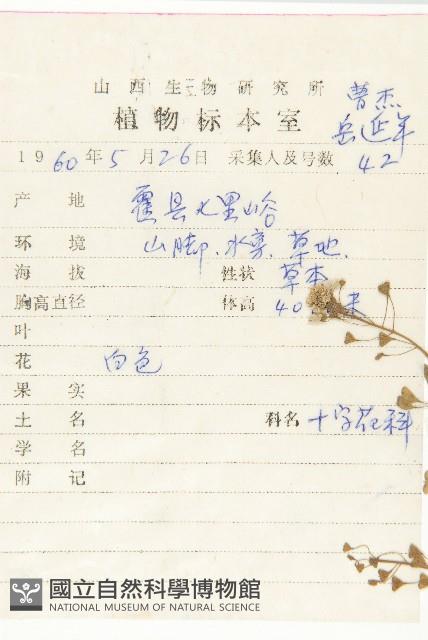 山西生物研究所
植物标本室
曹杰
岳延年
1960年5月26日 采集人及号数 42
产地 霍县七里峪
环境 山脚、水旁、草地、
海拔 性状 草本
胸高直径 体高 40 米
叶
花 白色
果实
土名 科名 十字花科
学名
附记
國立自然科學博物館
NATIONAL MUSEUM OF NATURAL SCIENCE